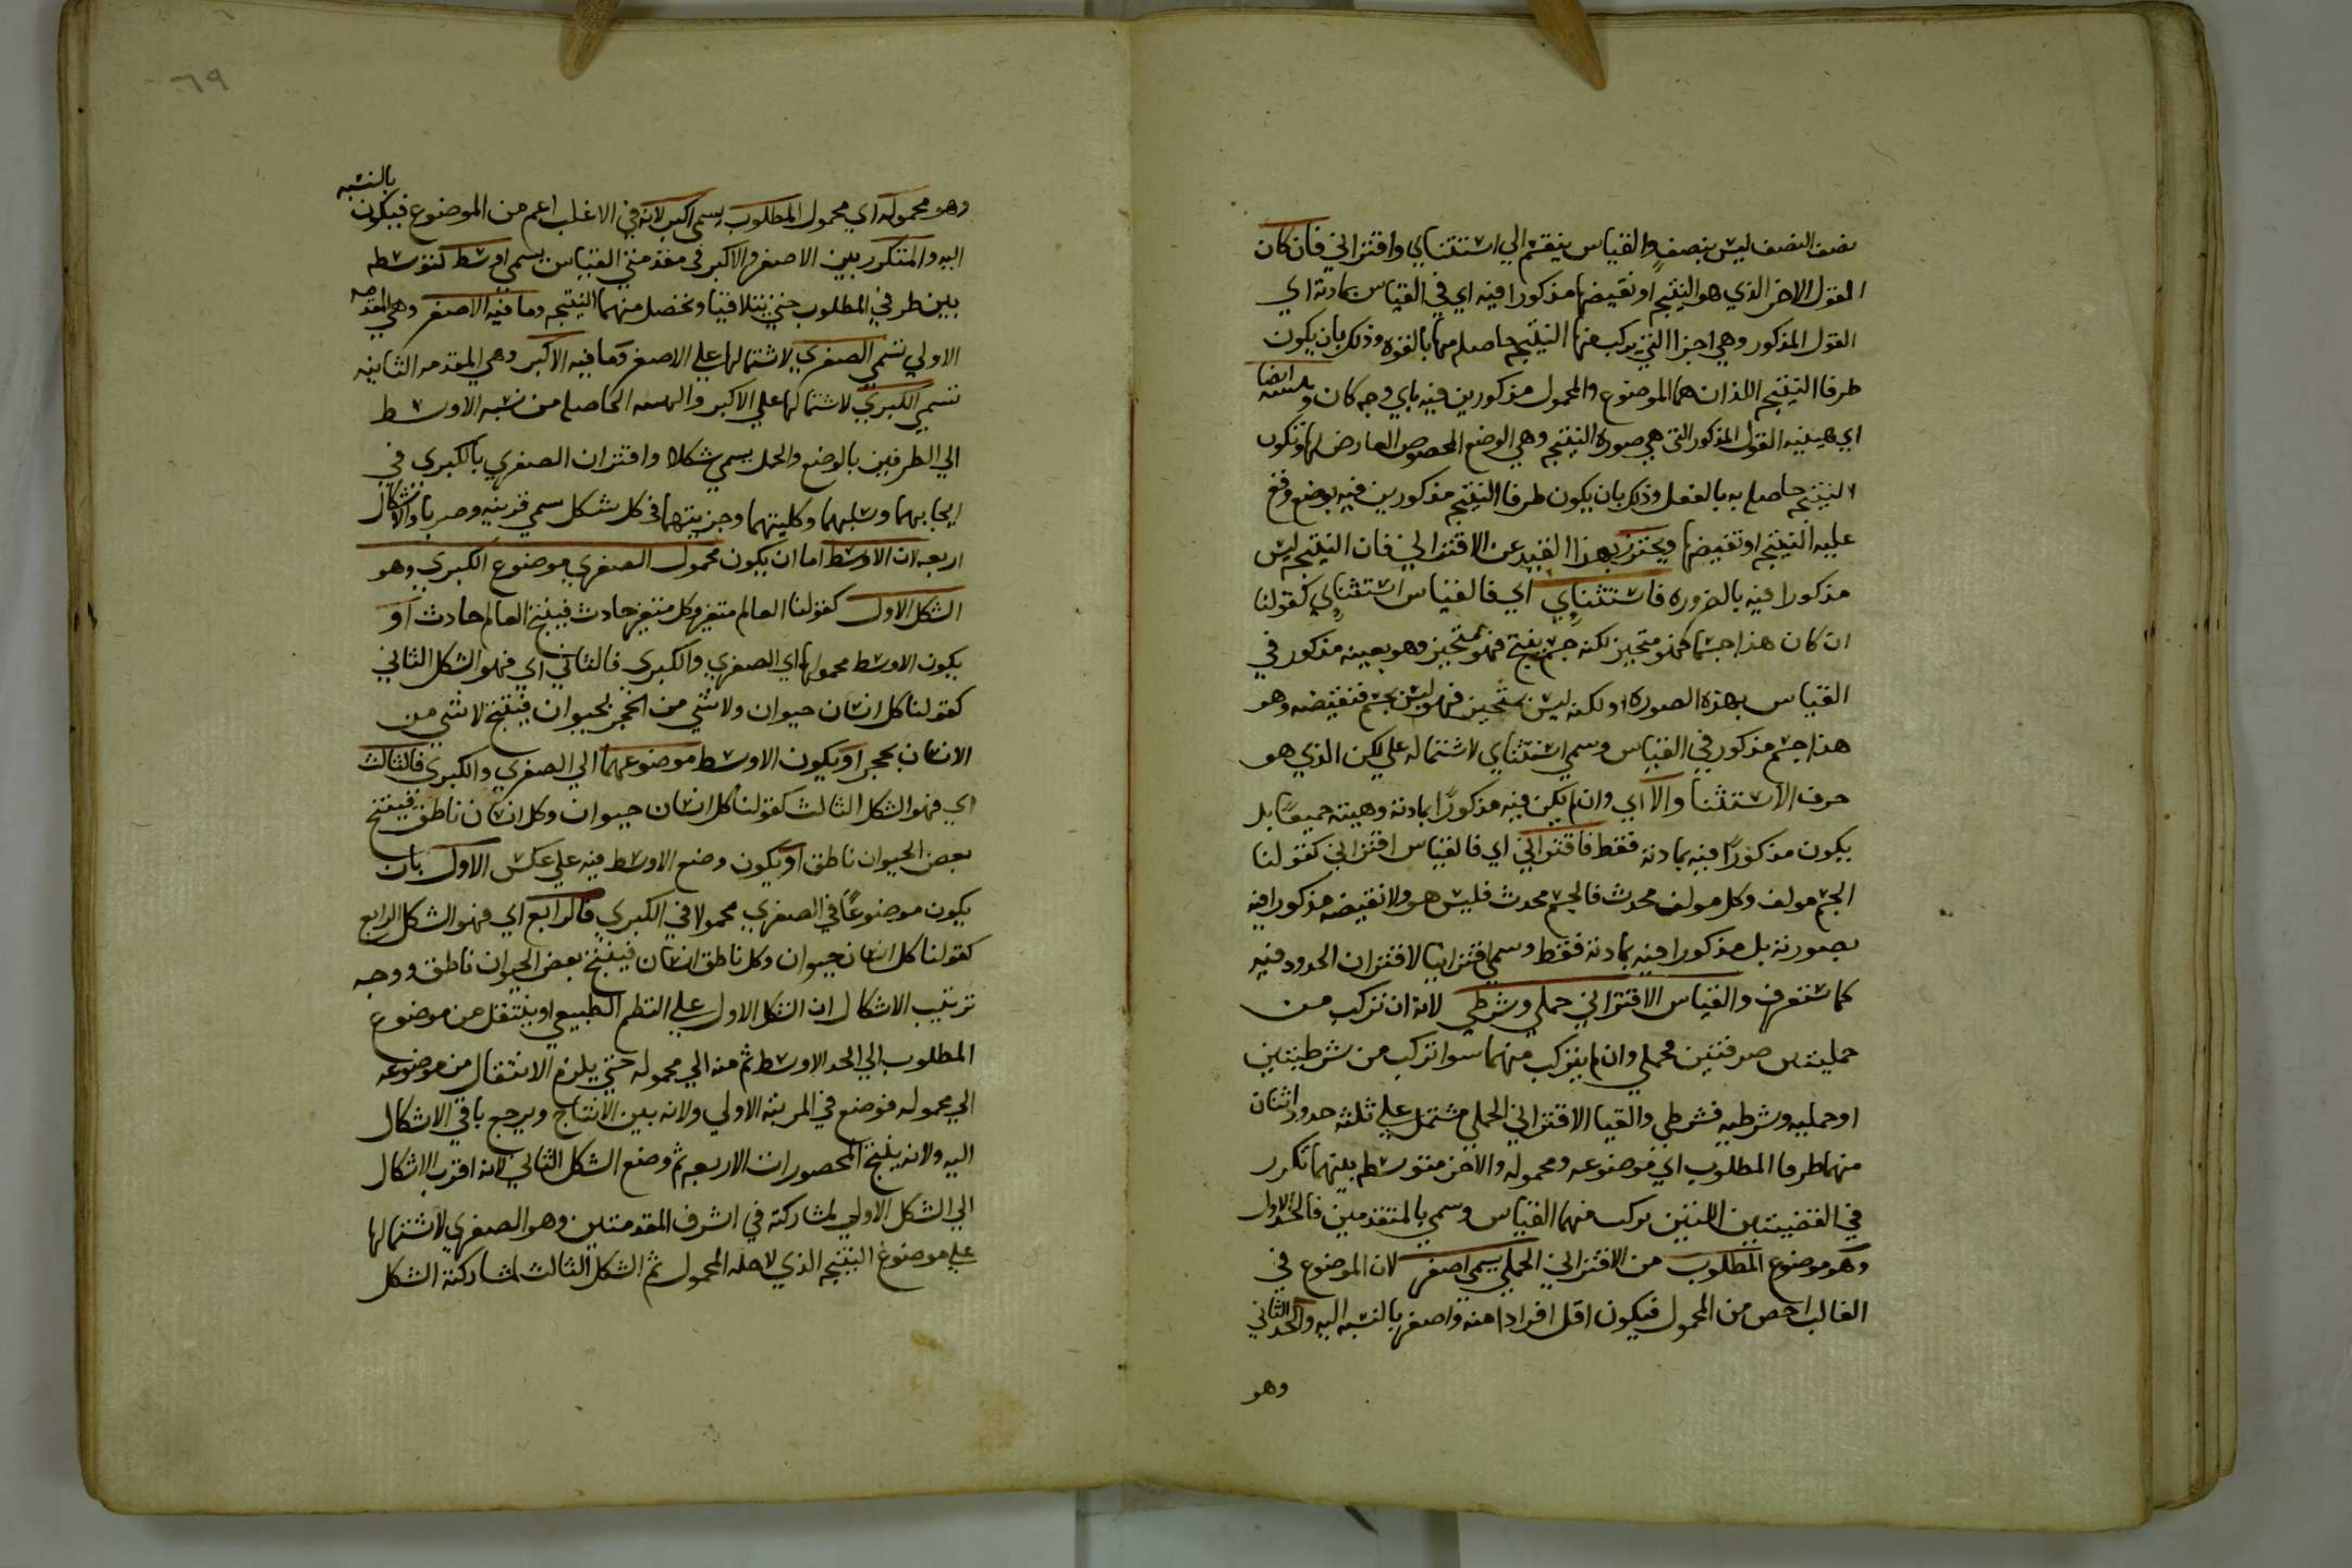 نصف النصف ليس بنصف والقياس ينقسم الي استثنائي واقتراني فان كان
القول الاخر الذي هو النتيجه او نقيضها مذكورا فيه اي في القياس بمادته اي
القول المذكور وهي اجزا التي يركب منها النتيجه حاصله منها بالقوه وذلك بان يكون
طرفا النتيجه اللذان هما الموضوع والمحمول مذكورين فيه باي وجه كان وبهيئته ايضا
اي هيئيه القول المذكور التي هي صورة النتيجه وهي الوضع المخصوص العارض لها وتكون
النتيجه حاصله به بالفعل وذلك بان يكون طرفا النتيجه مذكورين فيه بوضع وقع
عليه النتيجه او نقيضها ويحترز بهذا القيد عن الاقتراني فان النتيجه ليس
مذكورا فيه بالضروره فاستثنايي اي فالقياس استثنايي كقولنا
ان كان هذا جسما فهو متحيز لكنه جسم ينتج فهو متحيز وهو بعينه مذكور في
القياس بهذه الصوره او لكنه ليس بمتحيز فهو ليس بجسم فنقيضه وهو
هذا جسم مذكور في القياس وسمي استثنائي لاشتماله علي لكن الذي هو
حرف الاستثنا والا اي وان لم يكن فيه مذكورًا بمادته وهيئته جميعًا بل
يكون مذكورًا فيه بمادته فقط فاقتراني اي فالقياس اقتراني كقولنا
الجسم مولف وكل مولف محدث فالجسم محدث فليس هو ولا نقيضه مذكورا فيه
بصورته بل مذكورا فيه بمادته فقط وسمي اقترانيا لاقتران الحدود فيه
كما ستعرف والقياس الاقتراني حملي وشرطي لانه ان تركب من
حمليتين صرفتين فحملي وان لم يتركب منهما سوا تركب من شرطيتين
او حمليه وشرطيه فشرطي والقيا الاقتراني الحملي مشتمل علي ثلثه حدود اثنان
منهما طرفا المطلوب اي موضوعه ومحموله والاخر متوسط بينهما تكرر
في القضيتين اللتين تركب منهما القياس وسمي بالمتقدمين فالحد الاول
وهو موضوع المطلوب من الاقتراني الحملي يسمي اصغر لان الموضوع في
الغالب اخص من المحمول فيكون اقل افرادا منه واصغر بالنسبه اليه والحد الثاني
وهو
٦٩
وهو محموله اي محمول المطلوب يسمي اكبر لانه في الاغلب اعم من الموضوع فيكون بالنسبه
اليه والمتكرر بين الاصغر والاكبر في مقدمتي القياس يسمي اوسط لتوسطه
بين طرفي المطلوب حتي يتلاقيا وتحصل منهما النتيجه وما فيه الاصغر وهي المقدمه
الاولي تسمي الصغري لاشتمالها علي الاصغر وما فيه الاكبر وهي المقدمه الثانيه
تسمي الكبري لاشتمالها علي الاكبر والهيئه الحاصله من نسبه الاوسط
الي الطرفين بالوضع والحمل يسمي شكلا واقتران الصغري بالكبري في
ايجابهما وسلبهما وكليتهما وجزييتهما في كل شكل سمي قرينه وضربا والاشكال
اربعه لان الاوسط اما ان يكون محمول الصغري موضوع الكبري وهو
الشكل الاول كقولنا العالم متغير وكل متغير حادث فينتج العالم حادث او
يكون الاوسط محمولها اي الصغري والكبري فالثاني اي فهو الشكل الثاني
كقولنا كل انسان حيوان ولا شي من الحجر بحيوان فينتج لا شي من
الانسان بحجر او يكون الاوسط موضوعهما الي الصغري والكبري فالثالث
اي فهو الشكل الثالث كقولنا كل انسان حيوان وكل انسان ناطق فينتج
بعض الحيوان ناطق او يكون وضع الاوسط فيه علي عكس الاول بان
يكون موضوعًا في الصغري محمولا في الكبري فالرابع اي فهو الشكل الرابع
كقولنا كل انسان حيوان وكل ناطق انسان فينتج بعض الحيوان ناطق ووجه
ترتيب الاشكال ان الشكل الاول علي النظم الطبيعي او ينتقل من موضوع
المطلوب الي الحد الاوسط ثم منه الي محموله حتي يلزم الانتقال من موضوعه
الي محموله فوضع في المرتبه الاولي ولانه بين الانتاج ويرجع باقي الاشكال
اليه ولانه ينتج المحصورات الاربعه ثم وضع الشكل الثاني لانه اقرب الاشكال
الي الشكل الاول لمشاركته في اشرف المقدمتين وهو الصغري لاشتمالها
علي موضوع النتيجه الذي لاجله المحمول ثم الشكل الثالث لمشاركته الشكل